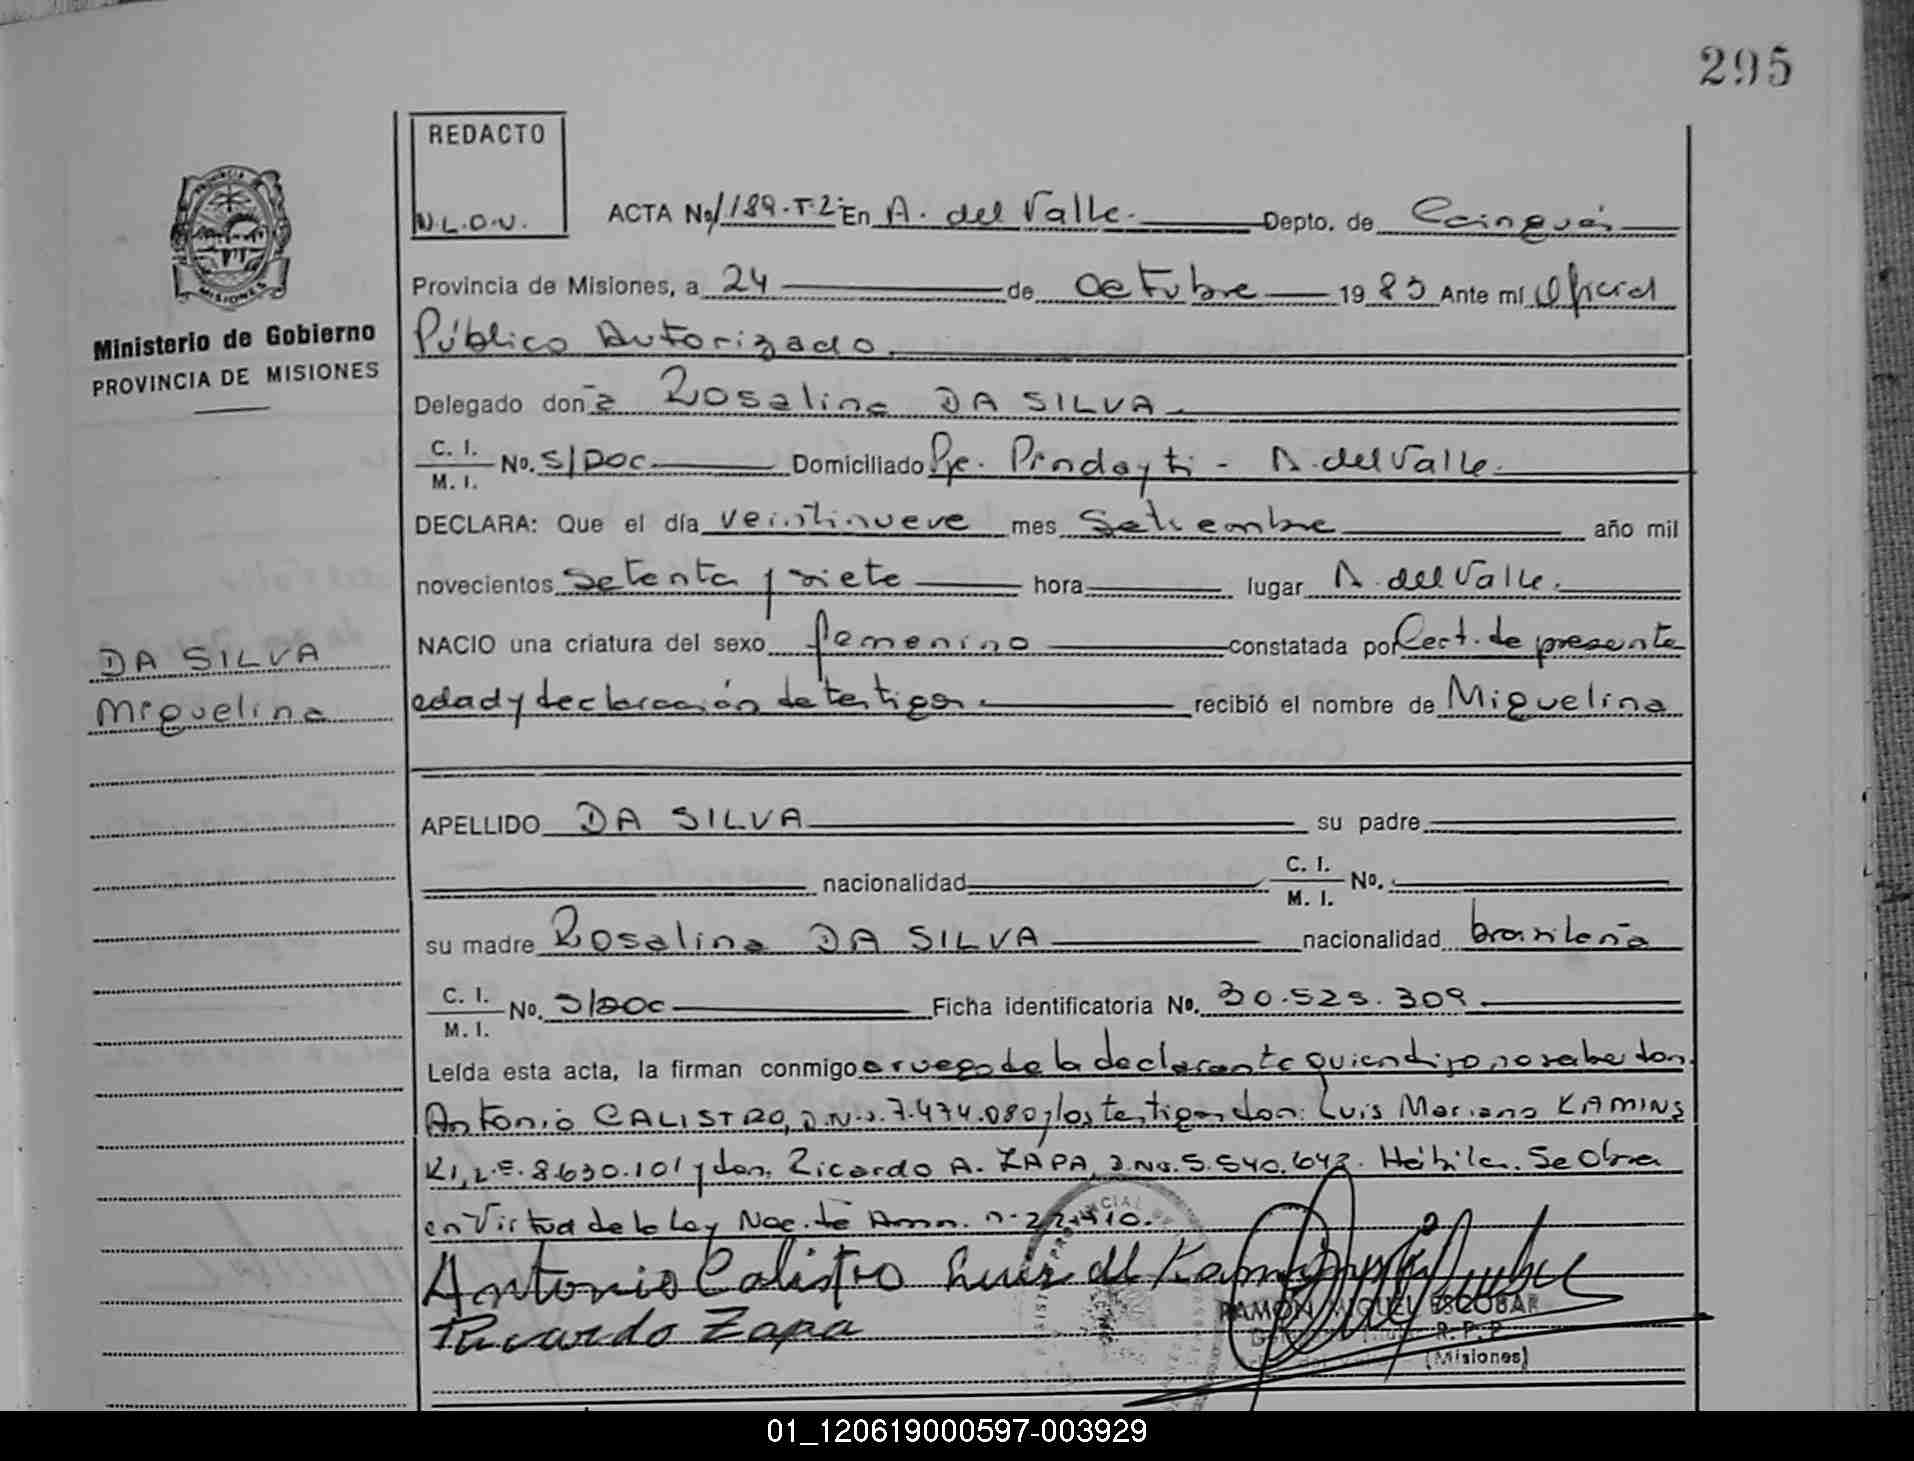 295
REDACTO
N.L.O.V.
PROVINCIA
MISIONES
Ministerio de Gobierno
PROVINCIA DE MISIONES
ACTA No. 189-T-2º En A. del Valle. Depto. de Cainguás
Provincia de Misiones, a 24 de octubre 1983 Ante mí Oficial
Público Autorizado.
Delegado doña Rosalina DA SILVA.
C. I.
M. I. No. S/DOC Domiciliado Pje. Pindayti - A. del Valle.
DECLARA: Que el día veintinueve mes Setiembre año mil
novecientos setenta y siete hora lugar A. del Valle.
NACIO una criatura del sexo femenino constatada por Cert. de presente
edad y declaración de testigos. recibió el nombre de Miguelina
DA SILVA
Miguelina
APELLIDO DA SILVA su padre
nacionalidad C. I.
M. I. No.
su madre Rosalina DA SILVA nacionalidad brasileña
C. I.
M. I. No. S/DOC Ficha identificatoria No. 30.525.309
Leída esta acta, la firman conmigo a ruego de la declarante quien dijo no saber don
Antonio CALISTRO, D.N.I. 7.474.080 y los testigos don: Luis Mariano KAMINS
KI, L.E. 8.630.101 y don. Ricardo A. ZAPA, D.N.I. 5.540.642. Hábiles. Se Obra
en Virtud de la Ley Nac. de Amn. n- 22.410.
Antonio Calistro Luis M Kaminski
Ricardo Zapa
RAMON MIGUEL ESCOBAR
R.P.P.
(Misiones)
01_120619000597-003929